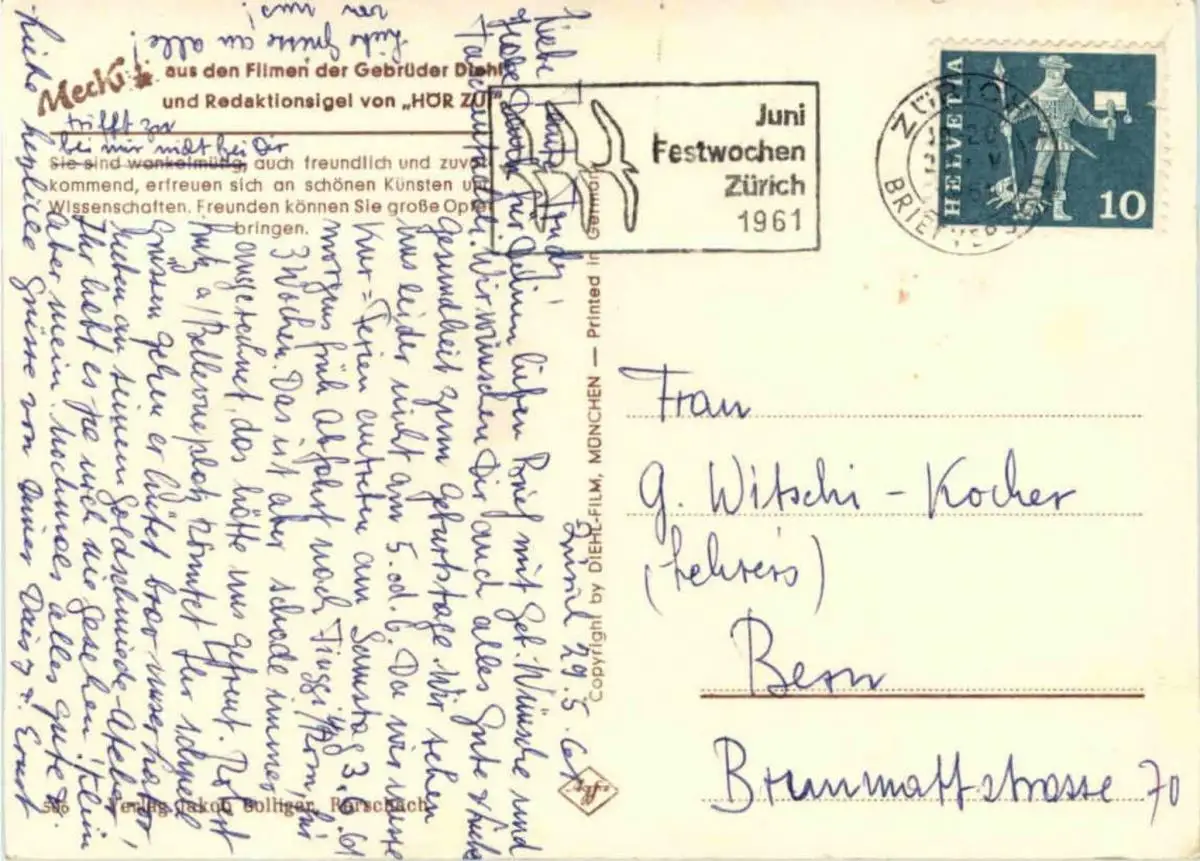 Mecki
aus den Filmen der Gebrüder Diehl
und Redaktionsigel von „HÖR ZU"
trifft zu
bei mir nicht bei Dir
Sie sind wankelmütig, auch freundlich und zuvor-
kommend, erfreuen sich an schönen Künsten und
Wissenschaften. Freunden können Sie große Opfer
bringen.
Zürich 29.5.61
Liebe Tante Trudi
Habe Dank für Deinen lieben Brief mit Geb. Wünsche und
Wir wünschen Dir auch alles Gute &
Gesundheit zum Geburtstage. Wir sehen
uns leider nicht am 5. od. 6. Da wir unsere
Kur = Ferien antreten am Samstag 3.6.61
morgens früh abfahrt nach
3 Wochen. Das ist aber schade immer
ausgerechnet, das hätte uns gefreut.
a/Bellevueplatz könntet Ihr schnell
grüssen gehen er hütet brav unser
neben an seinem Goldschmiede-Atelier
Ihr habt es ja noch nie gesehen. klein
aber mein. nochmals alles gute &
Liebe herzliche Grüsse von Deiner Daisy & Ernst
Liebe Grüsse an alle!
von uns!
Juni
Festwochen
Zürich
1961
ZÜRICH
BRIEFVERS
HELVETIA
10
Copyright by DIEHL-FILM, MÜNCHEN — Printed in Germany
Frau
G. Witschi - Kocher
(Lehrers)
Bern
Brunnmattstrasse 70
506 Verlag Jakob Bolliger, Rorschach